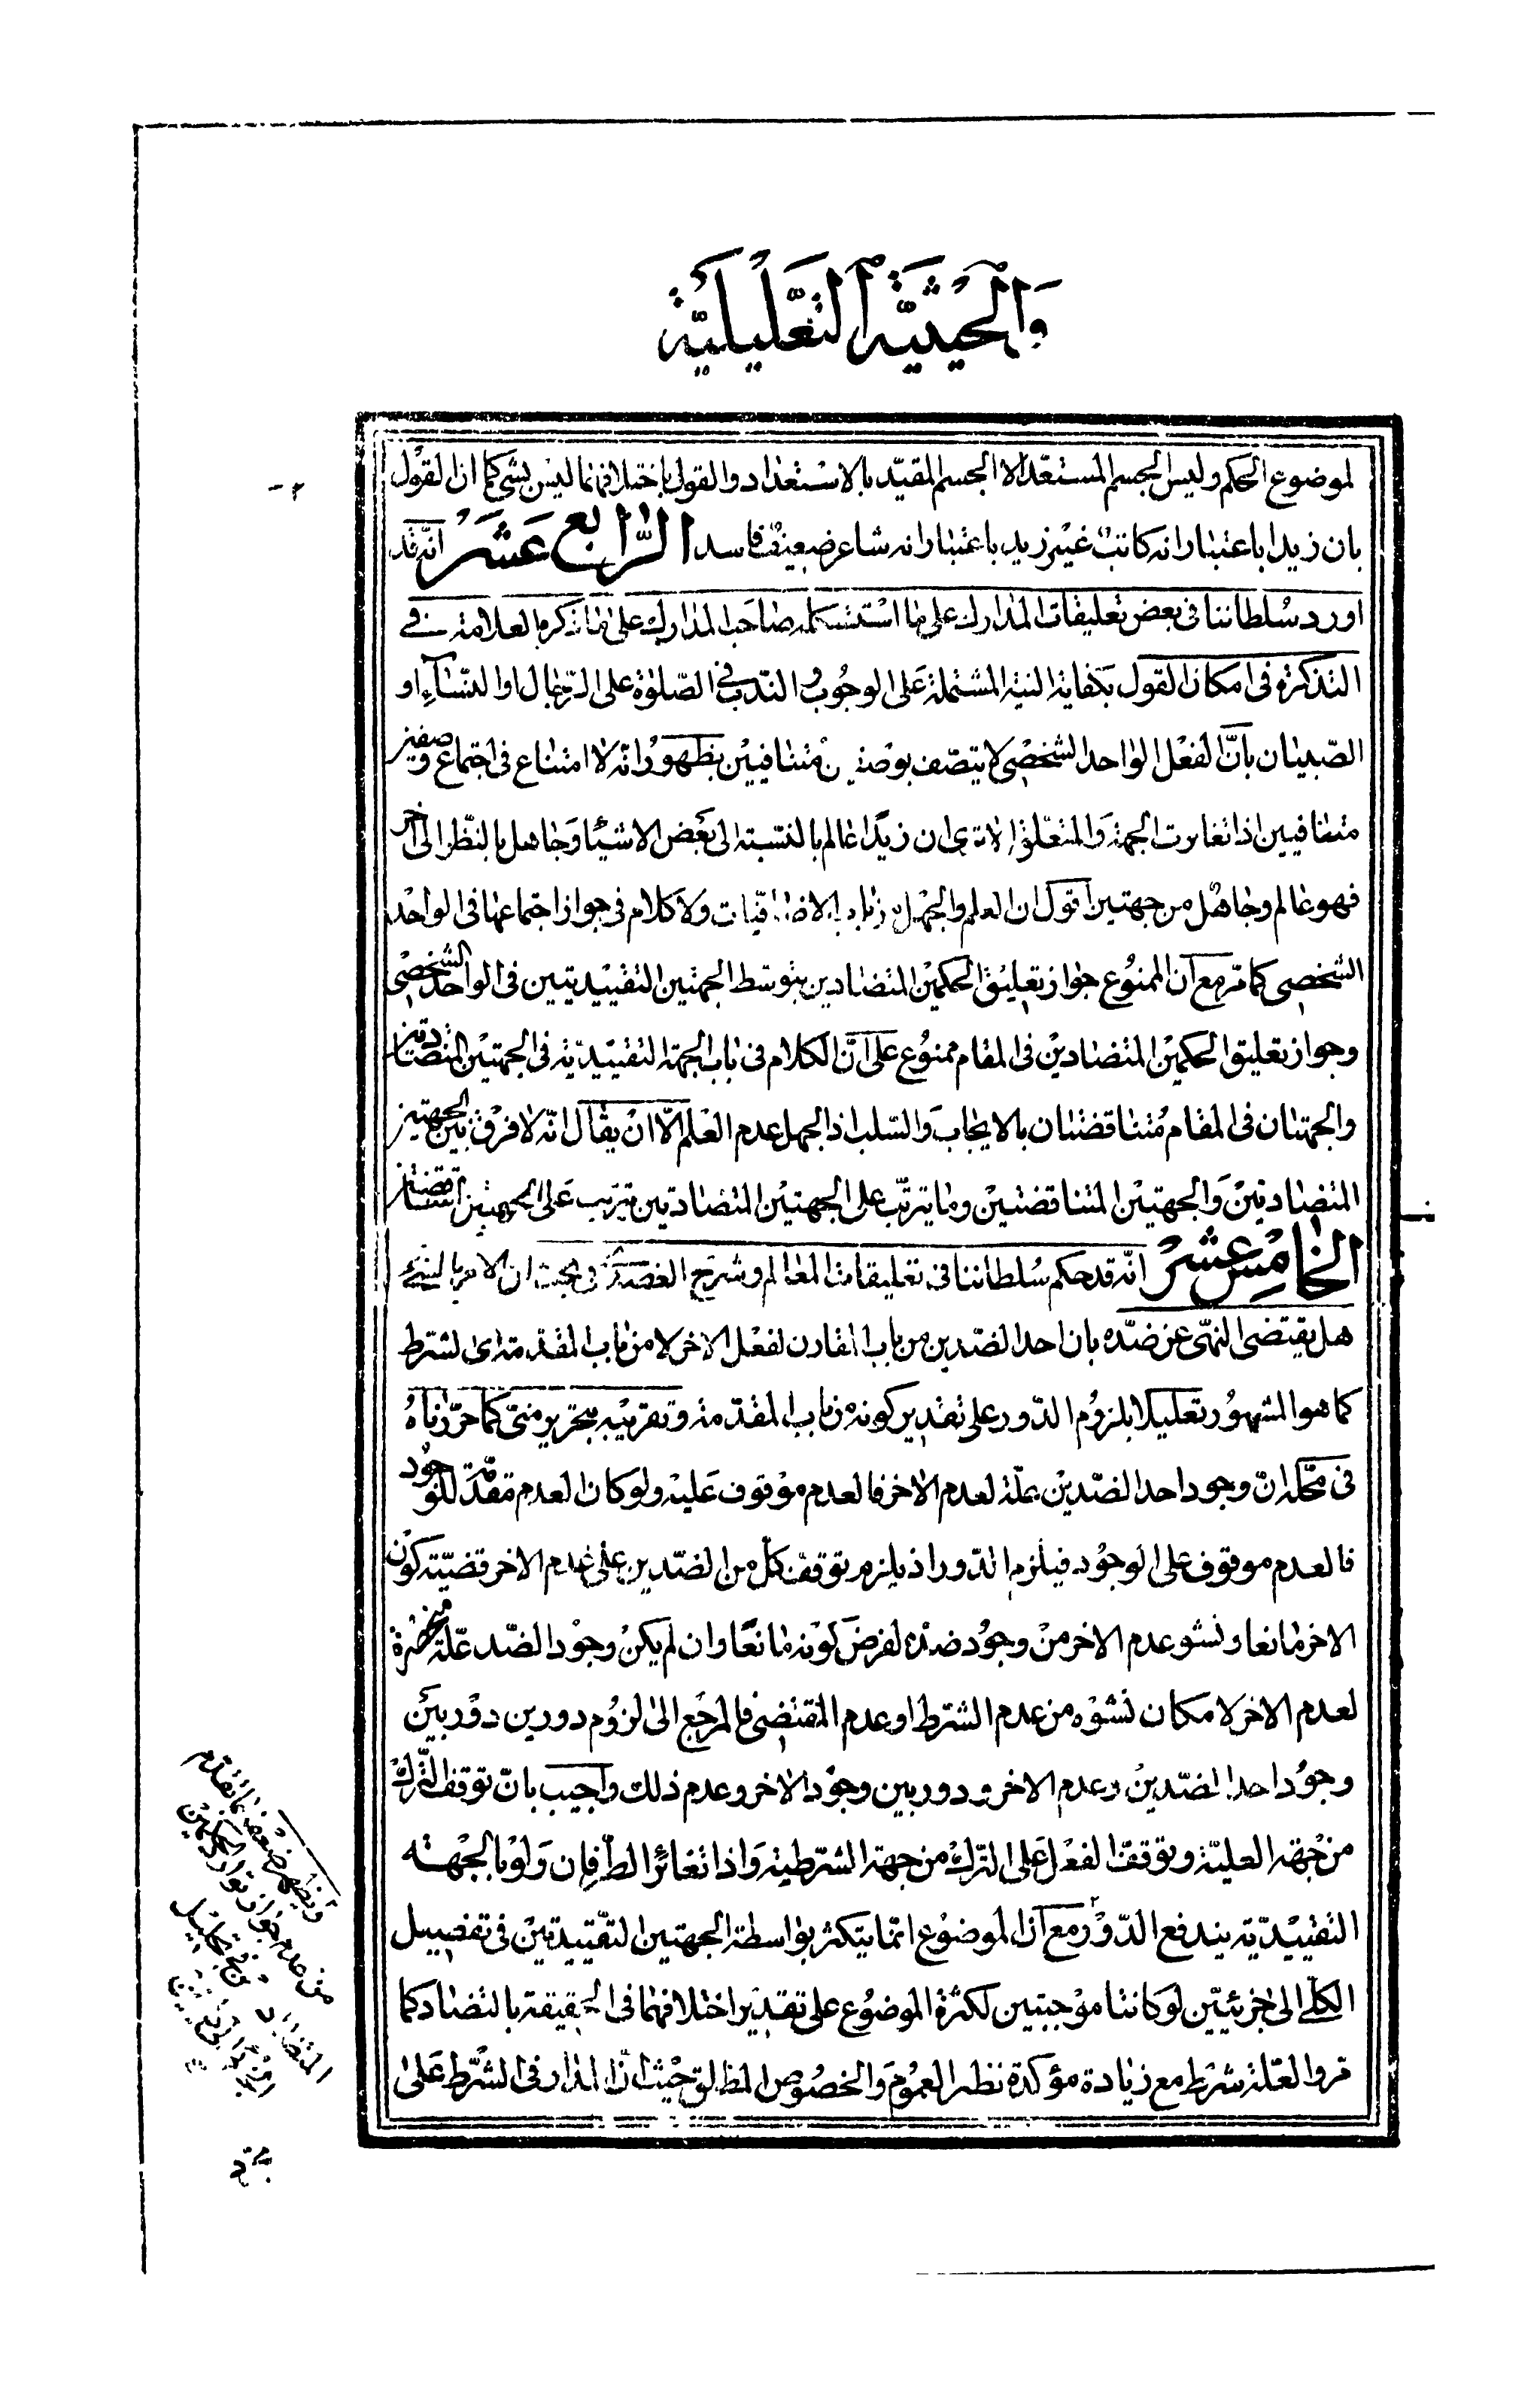 والحيثية التعليلية
لموضوع الحكم وليس الجسم المستعدّ الا الجسم المقيّد بالاستعداد والقول باختلافهما ليس بشئ كما ان القول
بان زيدا باعتبار انه كاتب غير زيد باعتبار انه شاعر ضعيف فاسد الرّابع عشر انّه قد
اورد سلطاننا فى بعض تعليقات المدارك على ما استشكله صاحب المدارك على ما ذكره العلامة فى
التذكرة فى امكان القول بكفاية النية المشتملة على الوجوب والندب فى الصّلوة على الرّجال او النّساء او
الصّبيان بانّ الفعل الواحد الشخصى لا يتصّف بوصفين متنافيين بظهور انّه لا امتناع فى اجتماع وصفين
متنافيين اذا تغايرت الجهة والمتعلّق الا ترى ان زيدا عالم بالنسبة الى بعض الاشياء وجاهل بالنّظر الى اخر
فهو عالم وجاهل من جهتين اقول ان العلم والجهل من باب الاضافيّات ولا كلام فى جواز اجتماعها فى الواحد
الشخصى كما مرّ مع ان الممنوع جواز تعليق الحكمين المتضادين بتوسّط الجهتين التقييديتين فى الواحد الشخصى
وجواز تعليق الحكمين المتضادين فى المقام ممنوع على انّ الكلام فى باب الجهة التقييديّة فى الجهتين المتضادتين
والجهتان فى المقام متناقضتان بالايجاب والسّلب اذ الجهل عدم العلم الّا ان يقال انّه لا فرق بين الجهتين
المتضادتين والجهتين المتناقضتين وما يترتّب على الجهتين المتضادتين يترتب على الجهتين المتناقضتين
الخامس عشر انّه قد حكم سلطاننا فى تعليقات المعالم وشرح العضدى فى بحث ان الامر بالشئ
هل يقتضى النهى عن ضدّه بان احد الضدّين من باب المقارن لفعل الاخر لا من باب المقدّمة اى الشرط
كما هو المشهور تعليلا بلزوم الدّور على تقدير كونه من باب المقدّمة وتقريبه بتحرير منّى كما حرّرناه
فى محلّه انّ وجود احد الضدّين علّة لعدم الاخر فالعدم موقوف عليه ولو كان العدم مقدّمة للوجود
فالعدم موقوف على الوجود فيلزم الدّور اذ يلزم توقف كلّ من الضدّين على عدم الاخر قضيّة كون
الاخر مانعا ونشو عدم الاخر من وجود ضدّه لفرض كونه مانعا وان لم يكن وجود الضد علّة منحصرة
لعدم الاخر لامكان نشوه من عدم الشرط او عدم المقتضى فالمرجع الى لزوم دورين دور بين
وجود احد الضدّين وعدم الاخر ودور بين وجود الاخر وعدم ذلك واجيب بانّ توقف الترك
من جهة العليّة وتوقف الفعل على الترك من جهة الشرّطية واذا تغاير الطّرفان ولو بالجهة
التقييديّة يندفع الدّور مع ان الموضوع انّما يتكثر بواسطة الجهتين التقييديتين فى تفصيل
الكلّى الى جزئيّين لو كانتا موجبتين لكثرة الموضوع على تقدير اختلافهما فى الحقيقة بالتضاد كما
مرّ والعلّة شرط مع زيادة مؤكدة نظير العموم والخصوص المطلق حيث انّ المدار فى الشرط على
ويظهر ضعفه بما تقدم
من عدم جواز توارد الحكمين